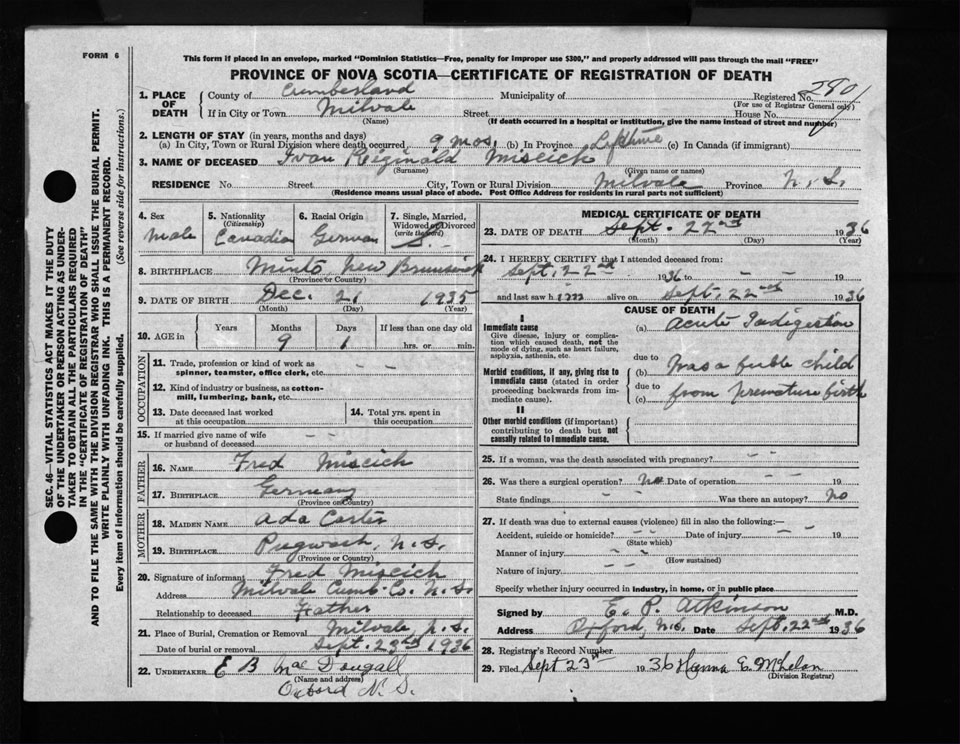 FORM 6
This form if placed in an envelope, marked "Dominion Statistics—Free, penalty for improper use $300," and properly addressed will pass through the mail "FREE"
PROVINCE OF NOVA SCOTIA—CERTIFICATE OF REGISTRATION OF DEATH
1. PLACE OF DEATH County of Cumberland Municipality of Registered No. 2801
(For use of Registrar General only)
If in City or Town Milvale Street House No.
(Name) (If death occurred in a hospital or institution, give the name instead of street and number)
2. LENGTH OF STAY (in years, months and days)
(a) In City, Town or Rural Division where death occurred 9 mos. (b) In Province Lifetime (c) In Canada (if immigrant)
3. NAME OF DECEASED Ivan Reginald Miscich
(Surname) (Given name or names)
RESIDENCE No. Street City, Town or Rural Division Milvale Province N.S.
(Residence means usual place of abode. Post Office Address for residents in rural parts not sufficient)
4. Sex Male
5. Nationality (Citizenship) Canadian
6. Racial Origin German
7. Single, Married, Widowed or Divorced (write the word) S.
8. BIRTHPLACE Minto, New Brunswick
(Province or Country)
9. DATE OF BIRTH Dec. 21 1935
(Month) (Day) (Year)
10. AGE in Years Months Days If less than one day old
9 1 hrs. or min.
OCCUPATION
11. Trade, profession or kind of work as spinner, teamster, office clerk, etc. – –
12. Kind of industry or business, as cotton-mill, lumbering, bank, etc.
13. Date deceased last worked at this occupation
14. Total yrs. spent in this occupation
15. If married give name of wife or husband of deceased – –
FATHER
16. NAME Fred Miscich
17. BIRTHPLACE Germany
(Province or Country)
MOTHER
18. MAIDEN NAME Ada Carter
19. BIRTHPLACE Pugwash, N.S.
(Province or Country)
20. Signature of informant Fred Miscich
Address Milvale Cumb. Co. N.S.
Relationship to deceased Father
21. Place of Burial, Cremation or Removal Milvale N.S.
Date of burial or removal Sept. 23rd 1936
22. UNDERTAKER E B MacDougall
(Name and address)
Oxford N.S.
MEDICAL CERTIFICATE OF DEATH
23. DATE OF DEATH Sept. 22nd 1936
(Month) (Day) (Year)
24. I HEREBY CERTIFY that I attended deceased from:
Sept. 22nd 1936 to – – 19
and last saw him alive on Sept. 22nd 1936
CAUSE OF DEATH
I
Immediate cause
Give disease, injury or complication which caused death, not the mode of dying, such as heart failure, asphyxia, asthenia, etc.
(a) Acute Indigestion
due to
Morbid conditions, if any, giving rise to immediate cause (stated in order proceeding backwards from immediate cause).
(b) Was a feeble child
due to
(c) from premature birth
II
Other morbid conditions (if important) contributing to death but not causally related to immediate cause.
25. If a woman, was the death associated with pregnancy? – –
26. Was there a surgical operation? No Date of operation – – 19
State findings – – Was there an autopsy? No
27. If death was due to external causes (violence) fill in also the following:—
Accident, suicide or homicide? – – Date of injury – – 19
(State which)
Manner of injury – –
(How sustained)
Nature of injury – –
Specify whether injury occurred in industry, in home, or in public place
Signed by E. P. Atkinson M.D.
Address Oxford, N.S. Date Sept. 22nd 1936
28. Registrar's Record Number
29. Filed Sept 23rd 1936 E.
(Division Registrar)
SEC. 46—VITAL STATISTICS ACT MAKES IT THE DUTY
OF THE UNDERTAKER OR PERSON ACTING AS UNDER-
TAKER TO OBTAIN ALL THE PARTICULARS REQUIRED
IN THE "CERTIFICATE OF REGISTRATION OF DEATH"
AND TO FILE THE SAME WITH THE DIVISION REGISTRAR WHO SHALL ISSUE THE BURIAL PERMIT.
WRITE PLAINLY WITH UNFADING INK. THIS IS A PERMANENT RECORD.
Every item of information should be carefully supplied. (See reverse side for instructions.)